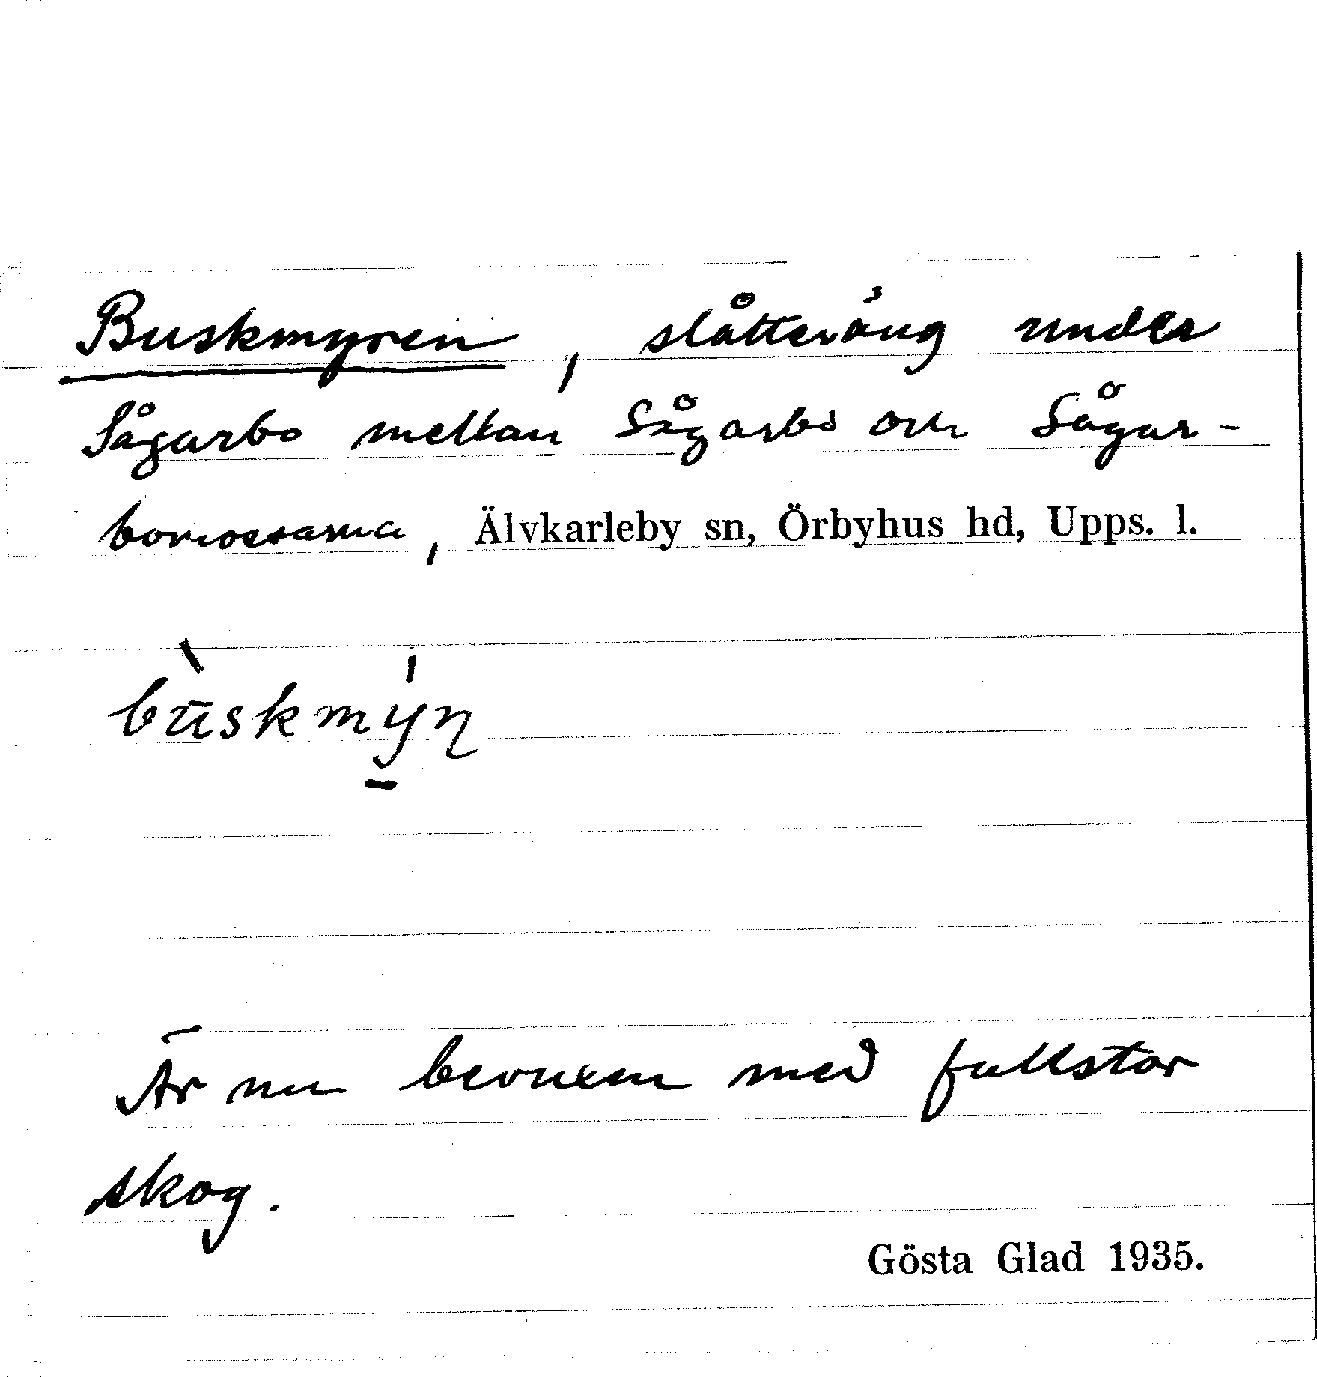 Buskmyren, slåtteräng under
Sågarbo mellan Sågarbo och Sågar-
bomossarna, Älvkarleby sn, Örbyhus hd, Upps. l.
bùskmýn
Är nu bevuxen med fullstor
skog.
Gösta Glad 1935.